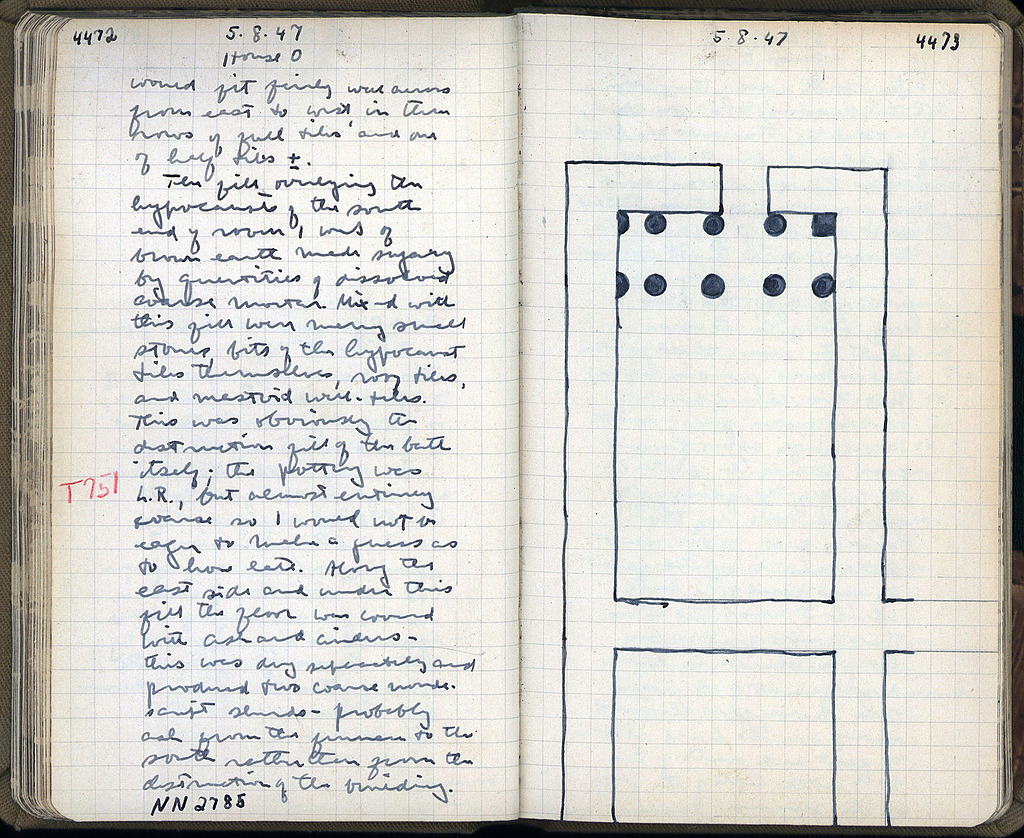 4472
5.8.47
House O
would fit fairly well across
from east to west in three
rows of full tiles and one
of half tiles ±.
The fill overlying the
hypocausts of the south
end of room 1 was of
brown earth made sugary
by quantities of dissolved
coarse mortar. Mixed with
this fill were many small
stones, bits of the hypocaust
tiles themselves, roof tiles,
and mastoid wall-tiles.
This was obviously the
destruction fill of the bath
itself; the pottery was
T751
L.R., but almost entirely
coarse so I would not be
eager to make a guess as
to how late. Along the
east side and under this
fill the floor was covered
with ash and cinders -
this was dug separately and
produced two coarse nonde-
script sherds - probably
ash from the furnace to the
south rather than from the
destruction of the building.
NN 2785
5.8.47
4473